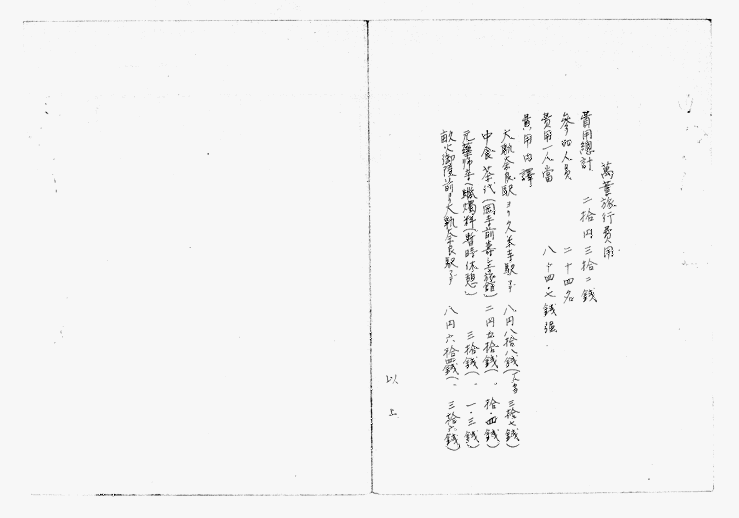 萬葉旅行費用
費用總計　二拾円三拾二銭
參加人員　二十四名
費用一人當　八十四・七銭强．
費用内譯
大軌奈良駅ヨリ久米寺駅マデ　八円八拾八銭(一人当　三拾七銭)
中食茶代(岡寺前壽 旅館)　二円五拾銭(〃　拾・四銭)
元薬師寺(蠟燭料(暫時休憩)　三拾銭(〃　一・三銭)
畝火御陵前ヨリ大軌奈良駅マデ　八円六拾四銭(〃　三拾六銭)
以上